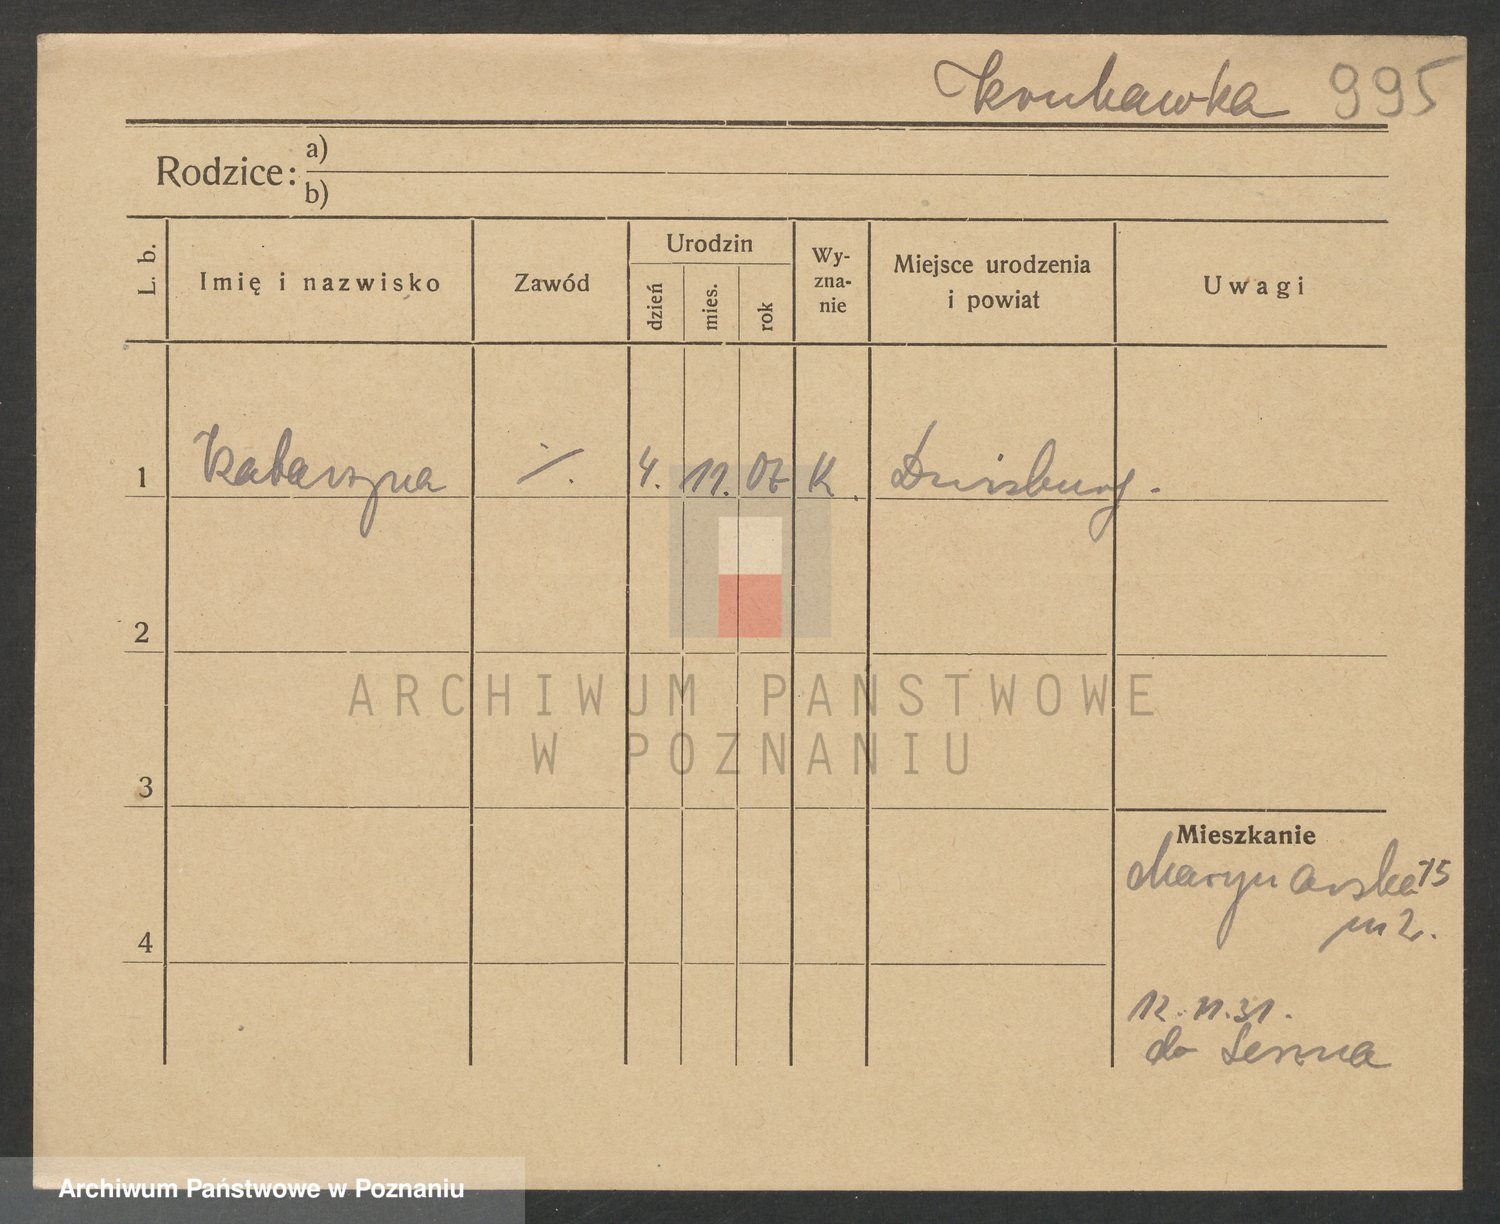 Krukawka 995
Rodzice:
a)
b)
L. b.
Imię i nazwisko
Zawód
Urodzin
dzień
mies.
rok
Wy-
zna-
nie
Miejsce urodzenia
i powiat
Uwagi
1 Katarzyna ·/. 4. 11. 07 K. Duisburg.
2
3
4
Mieszkanie
Marynarska 15
m 2.
12.11.31.
do
ARCHIWUM PAŃSTWOWE
W POZNANIU
Archiwum Państwowe w Poznaniu